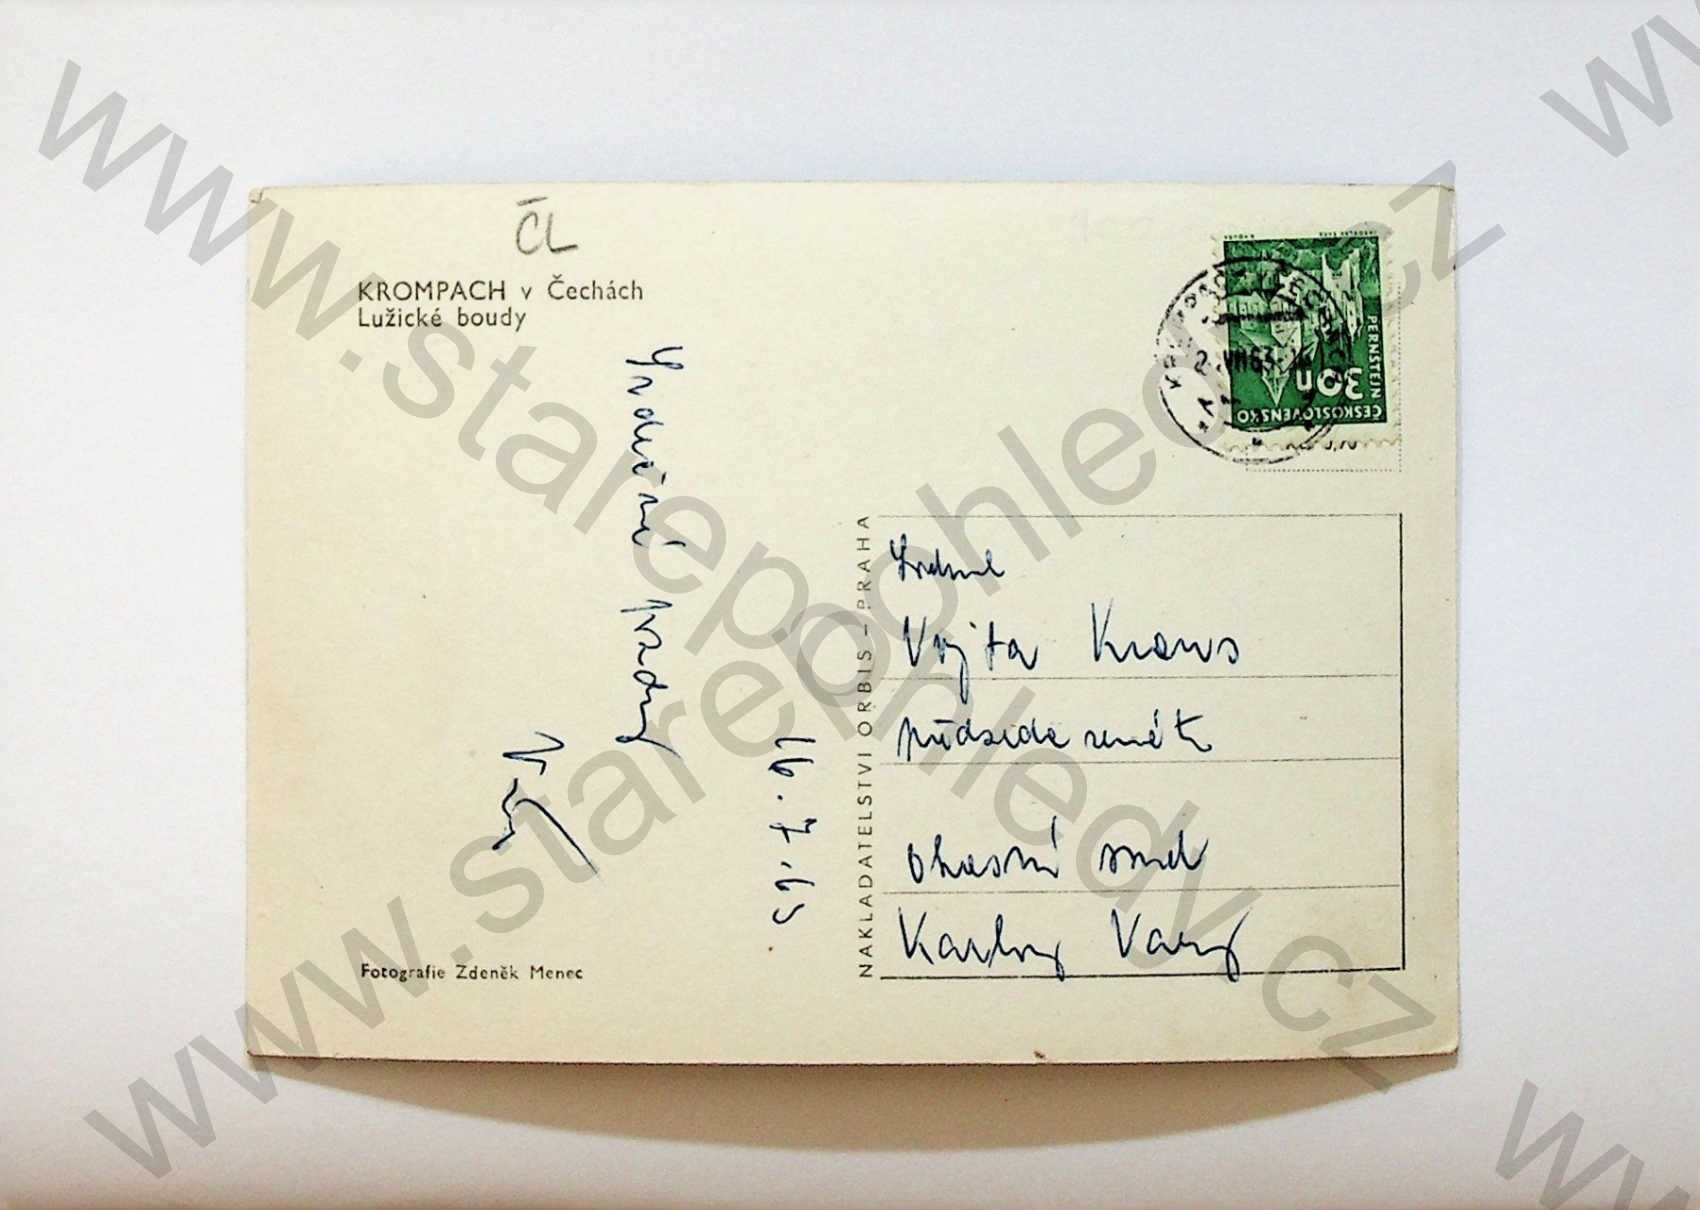 ČL
KROMPACH v Čechách
Lužické boudy
Srdečné pozdravy
16.7.63
Fotografie Zdeněk Menec
NAKLADATELSTVÍ ORBIS – PRAHA
ČESKOSLOVENSKO
30h
PERNŠTEJN
Vojta Kraus
předseda senátu
okresní soud
Karlovy Vary
www.starepohledy.cz
www.starepohledy.cz